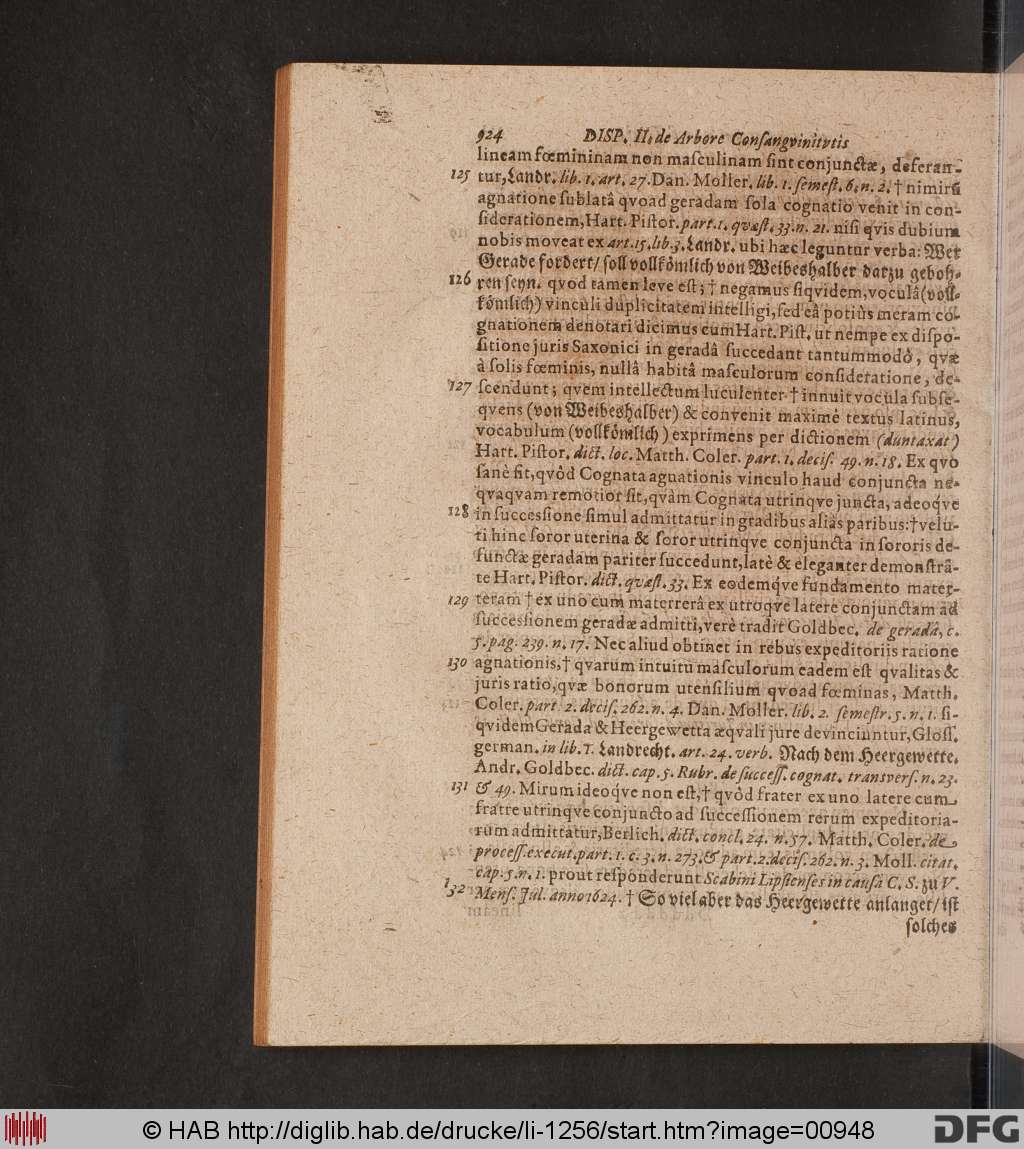 924 DISP. II. de Arbore Conſangvinitvtis
lineam fœmininam non maſculinam ſint conjunctæ, deferan-
125 tur, Landr. lib. 1. art. 27. Dan. Moller. lib. 1. ſemeſt. 6. n. 2. † nimirũ
agnatione ſublatâ qvoad geradam ſola cognatio venit in con-
ſiderationem, Hart. Piſtor. part. 1. qvæſt. 33. n. 21. niſi qvis dubium
nobis moveat ex art. 15. lib. 3. Landr. ubi hæc leguntur verba: Wer
Gerade fordert/ ſoll vollkoͤmlich von Weibeshalber darzu geboh-
126 ren ſeyn. qvod tamen leve eſt; † negamus ſiqvidem, voculâ (voll-
koͤmlich) vinculi duplicitatem intelligi, ſed eâ potiùs meram co-
gnationem denotari dicimus cum Hart. Piſt. ut nempe ex diſpo-
ſitione juris Saxonici in geradâ ſuccedant tantummodò, qvæ
à ſolis fœminis, nullâ habitâ maſculorum conſideratione, de-
127 ſcendunt; qvem intellectum luculenter † innuit vocula ſubſe-
qvens (von Weibeshalber) & convenit maximè textus latinus,
vocabulum (vollkoͤmlich) exprimens per dictionem (duntaxat)
Hart. Piſtor. dict. loc. Matth. Coler. part. 1. deciſ. 49. n. 18. Ex qvo
ſanè ſit, qvôd Cognata agnationis vinculo haud conjuncta ne-
qvaqvam remotior ſit, qvàm Cognata utrinqve juncta, adeoqve
128 in ſucceſſione ſimul admittatur in gradibus aliàs paribus: † velu-
ti hinc ſoror uterina & ſoror utrinqve conjuncta in ſororis de-
functæ geradam pariter ſuccedunt, latè & eleganter demonſtrâ-
te Hart. Piſtor. dict. qvæſt. 33. Ex eodemqve fundamento mater-
129 teram † ex uno cum materterâ ex utroqve latere conjunctam ad
ſucceſſionem geradæ admitti, verè tradit Goldbec. de geradâ, c.
5. pag. 239. n. 17. Nec aliud obtinet in rebus expeditoriis ratione
130 agnationis, † qvarum intuitu maſculorum eadem eſt qvalitas &
juris ratio, qvæ bonorum utenſilium qvoad fœminas, Matth.
Coler. part. 2. deciſ. 262. n. 4. Dan. Moller. lib. 2. ſemeſtr. 5. n. 1. ſi-
qvidem Gerada & Heergewetta æqvali jure devinciuntur, Gloſſ.
german. in lib. 1. Landrecht. art. 24. verb. Nach dem Heergewette.
Andr. Goldbec. dict. cap. 5. Rubr. de ſucceſſ. cognat. tranſverſ. n. 23.
131 & 49. Mirum ideoqve non eſt, † qvôd frater ex uno latere cum
fratre utrinqve conjuncto ad ſucceſſionem rerum expeditoria-
rum admittatur, Berlich. dict. concl. 24. n. 57. Matth. Coler. de
proceſſ. execut. part. 1. c. 3. n. 273. & part. 2. deciſ. 262. n. 3. Moll. citat.
cap. 5. n. 1. prout reſponderunt Scabini Lipſienſes in cauſâ C. S. zu V.
132 Menſ. Jul. anno 1624. † So viel aber das Heergewette anlanget/ iſt
ſolches
© HAB http://diglib.hab.de/drucke/li-1256/start.htm?image=00948
DFG